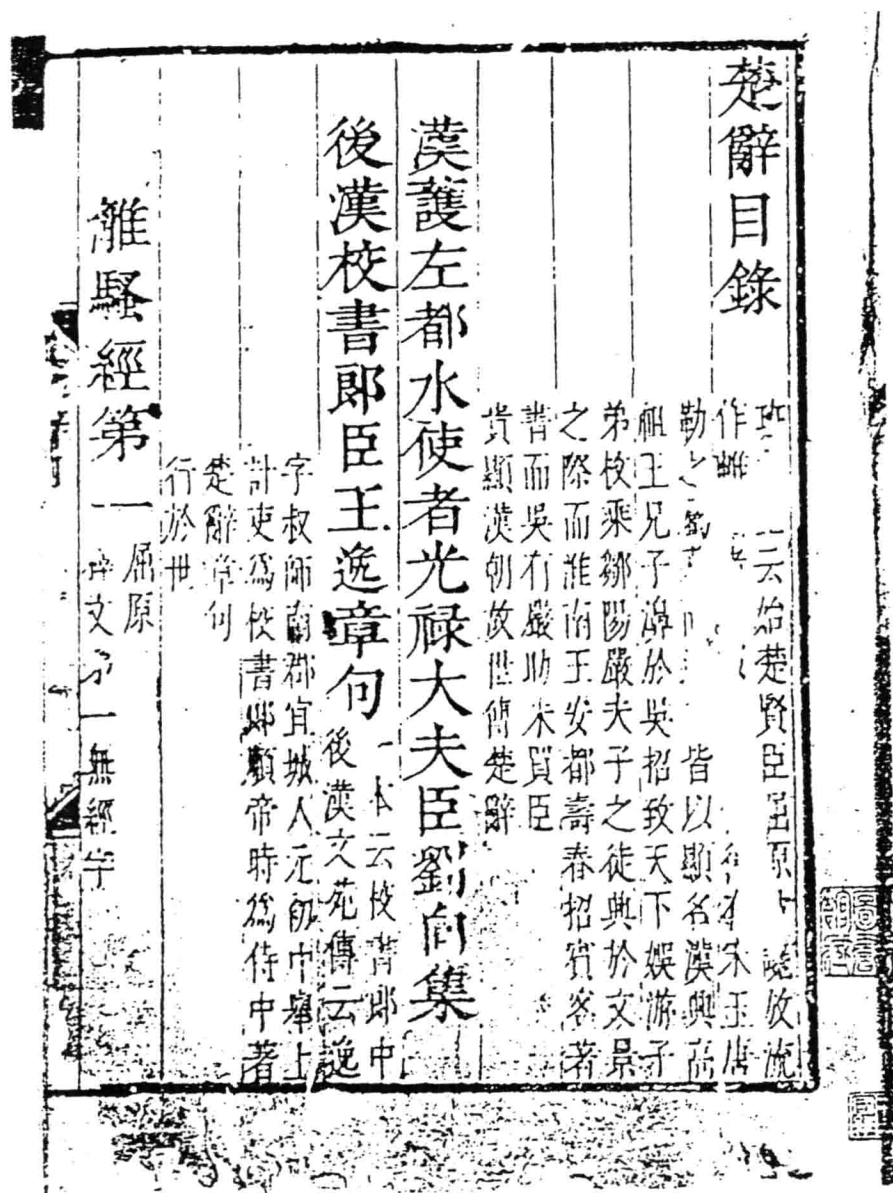 楚辭目錄
云始楚賢臣屈原 放流
作離 宋玉唐
勒之 皆以顯名漢興高
祖王兄子濞於吳招致天下娛游子
弟枚乘鄒陽嚴夫子之徒興於文景
之際而淮南王安都壽春招賓客著
書而吳有嚴助朱買臣
貴顯漢朝故世傳楚辭
漢護左都水使者光祿大夫臣劉向集
後漢校書郎臣王逸章句
一本云校書郎中
後漢文苑傳云逸
字叔師南郡宜城人元初中舉上
計吏為校書郎順帝時為侍中著
楚辭章句
行於世
離騷經第一
屈原
釋文第一無經字